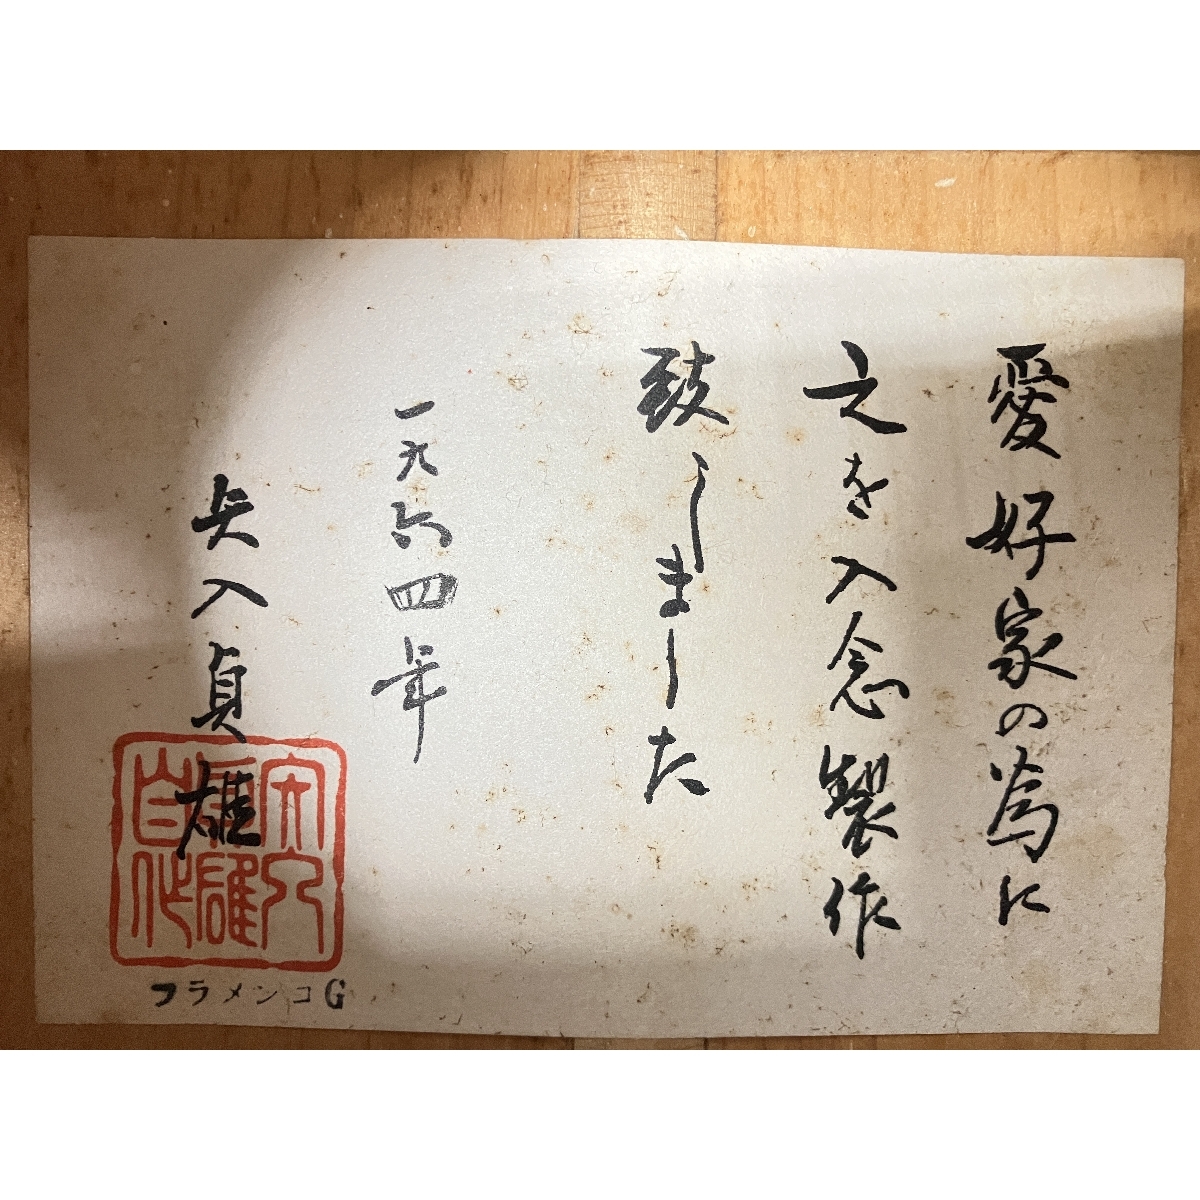 愛好家の為に
之を入念製作
致しました
一九六四年
矢入貞雄
矢入貞雄自作
フラメンコG